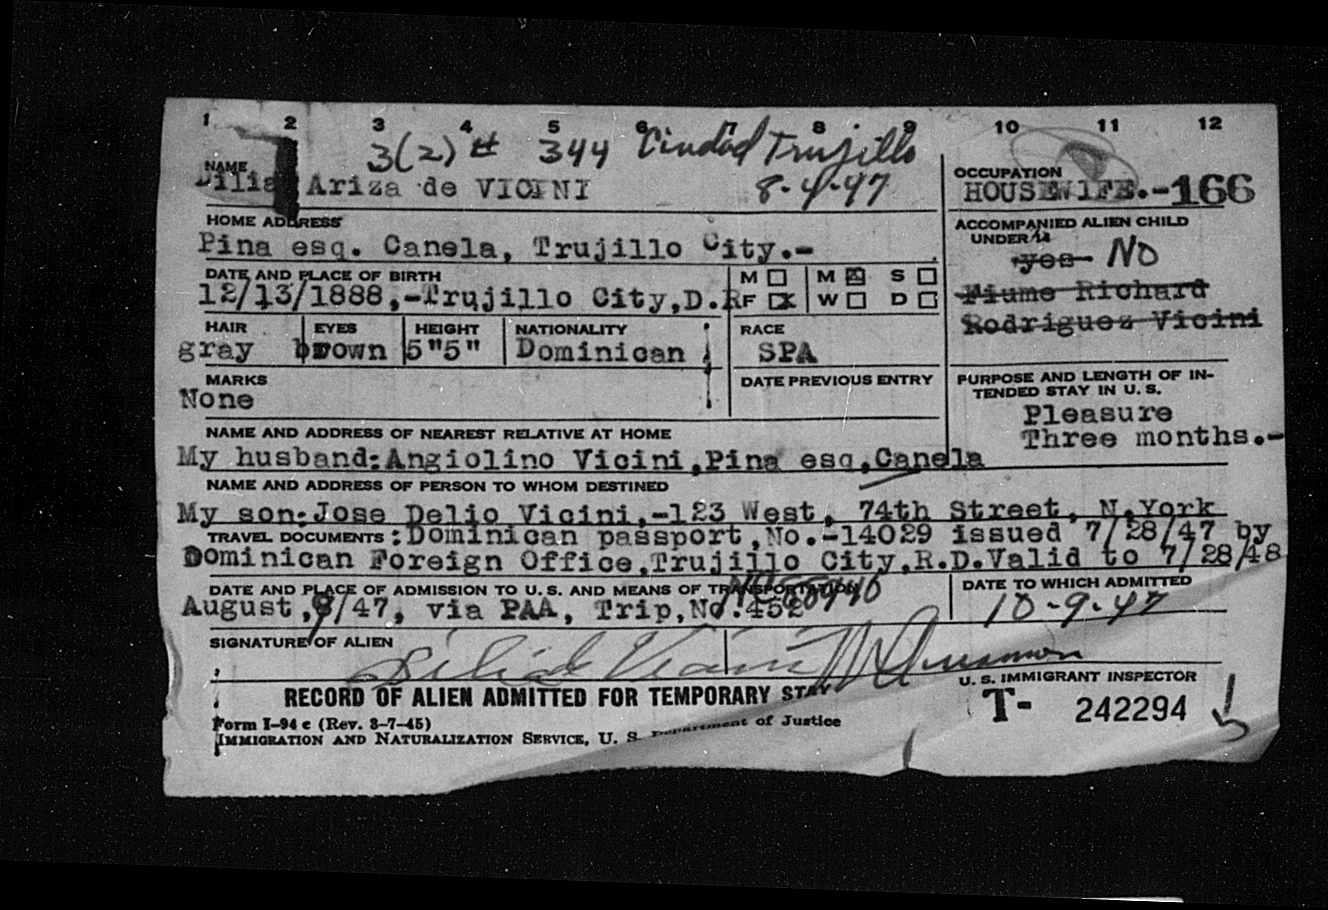 1 2 3 4 5 6 7 8 9 10 11 12
3(2) # 344 Ciudad Trujillo
NAME
Ariza de VICINI 8-4-47
OCCUPATION
HOUSEWIFE.-166
HOME ADDRESS
Pina esq. Canela, Trujillo City.-
ACCOMPANIED ALIEN CHILD
UNDER 14
yes- NO
Fiume Richard
Rodriguez Vicini
DATE AND PLACE OF BIRTH
12/13/1888,-Trujillo City,D.R
M M S
F X W D
HAIR EYES HEIGHT NATIONALITY RACE
gray brown 5"5" Dominican SPA
MARKS DATE PREVIOUS ENTRY
None
PURPOSE AND LENGTH OF IN-
TENDED STAY IN U. S.
Pleasure
Three months.-
NAME AND ADDRESS OF NEAREST RELATIVE AT HOME
My husband:Angiolino Vicini,Pina esq,Canela
NAME AND ADDRESS OF PERSON TO WHOM DESTINED
My son:Jose Delio Vicini,-123 West, 74th Street, N.York
TRAVEL DOCUMENTS :Dominican passport,No.-14029 issued 7/28/47 by
Dominican Foreign Office,Trujillo City,R.D.Valid to 7/28/48
DATE AND PLACE OF ADMISSION TO U. S. AND MEANS OF TRANSPORTATION
August, 9/47, via PAA, Trip,No.452
DATE TO WHICH ADMITTED
10-9-47
SIGNATURE OF ALIEN
Vicini
U. S. IMMIGRANT INSPECTOR
RECORD OF ALIEN ADMITTED FOR TEMPORARY STAY
T- 242294
Form I-94 c (Rev. 3-7-45)
IMMIGRATION AND NATURALIZATION SERVICE, U. S. Department of Justice